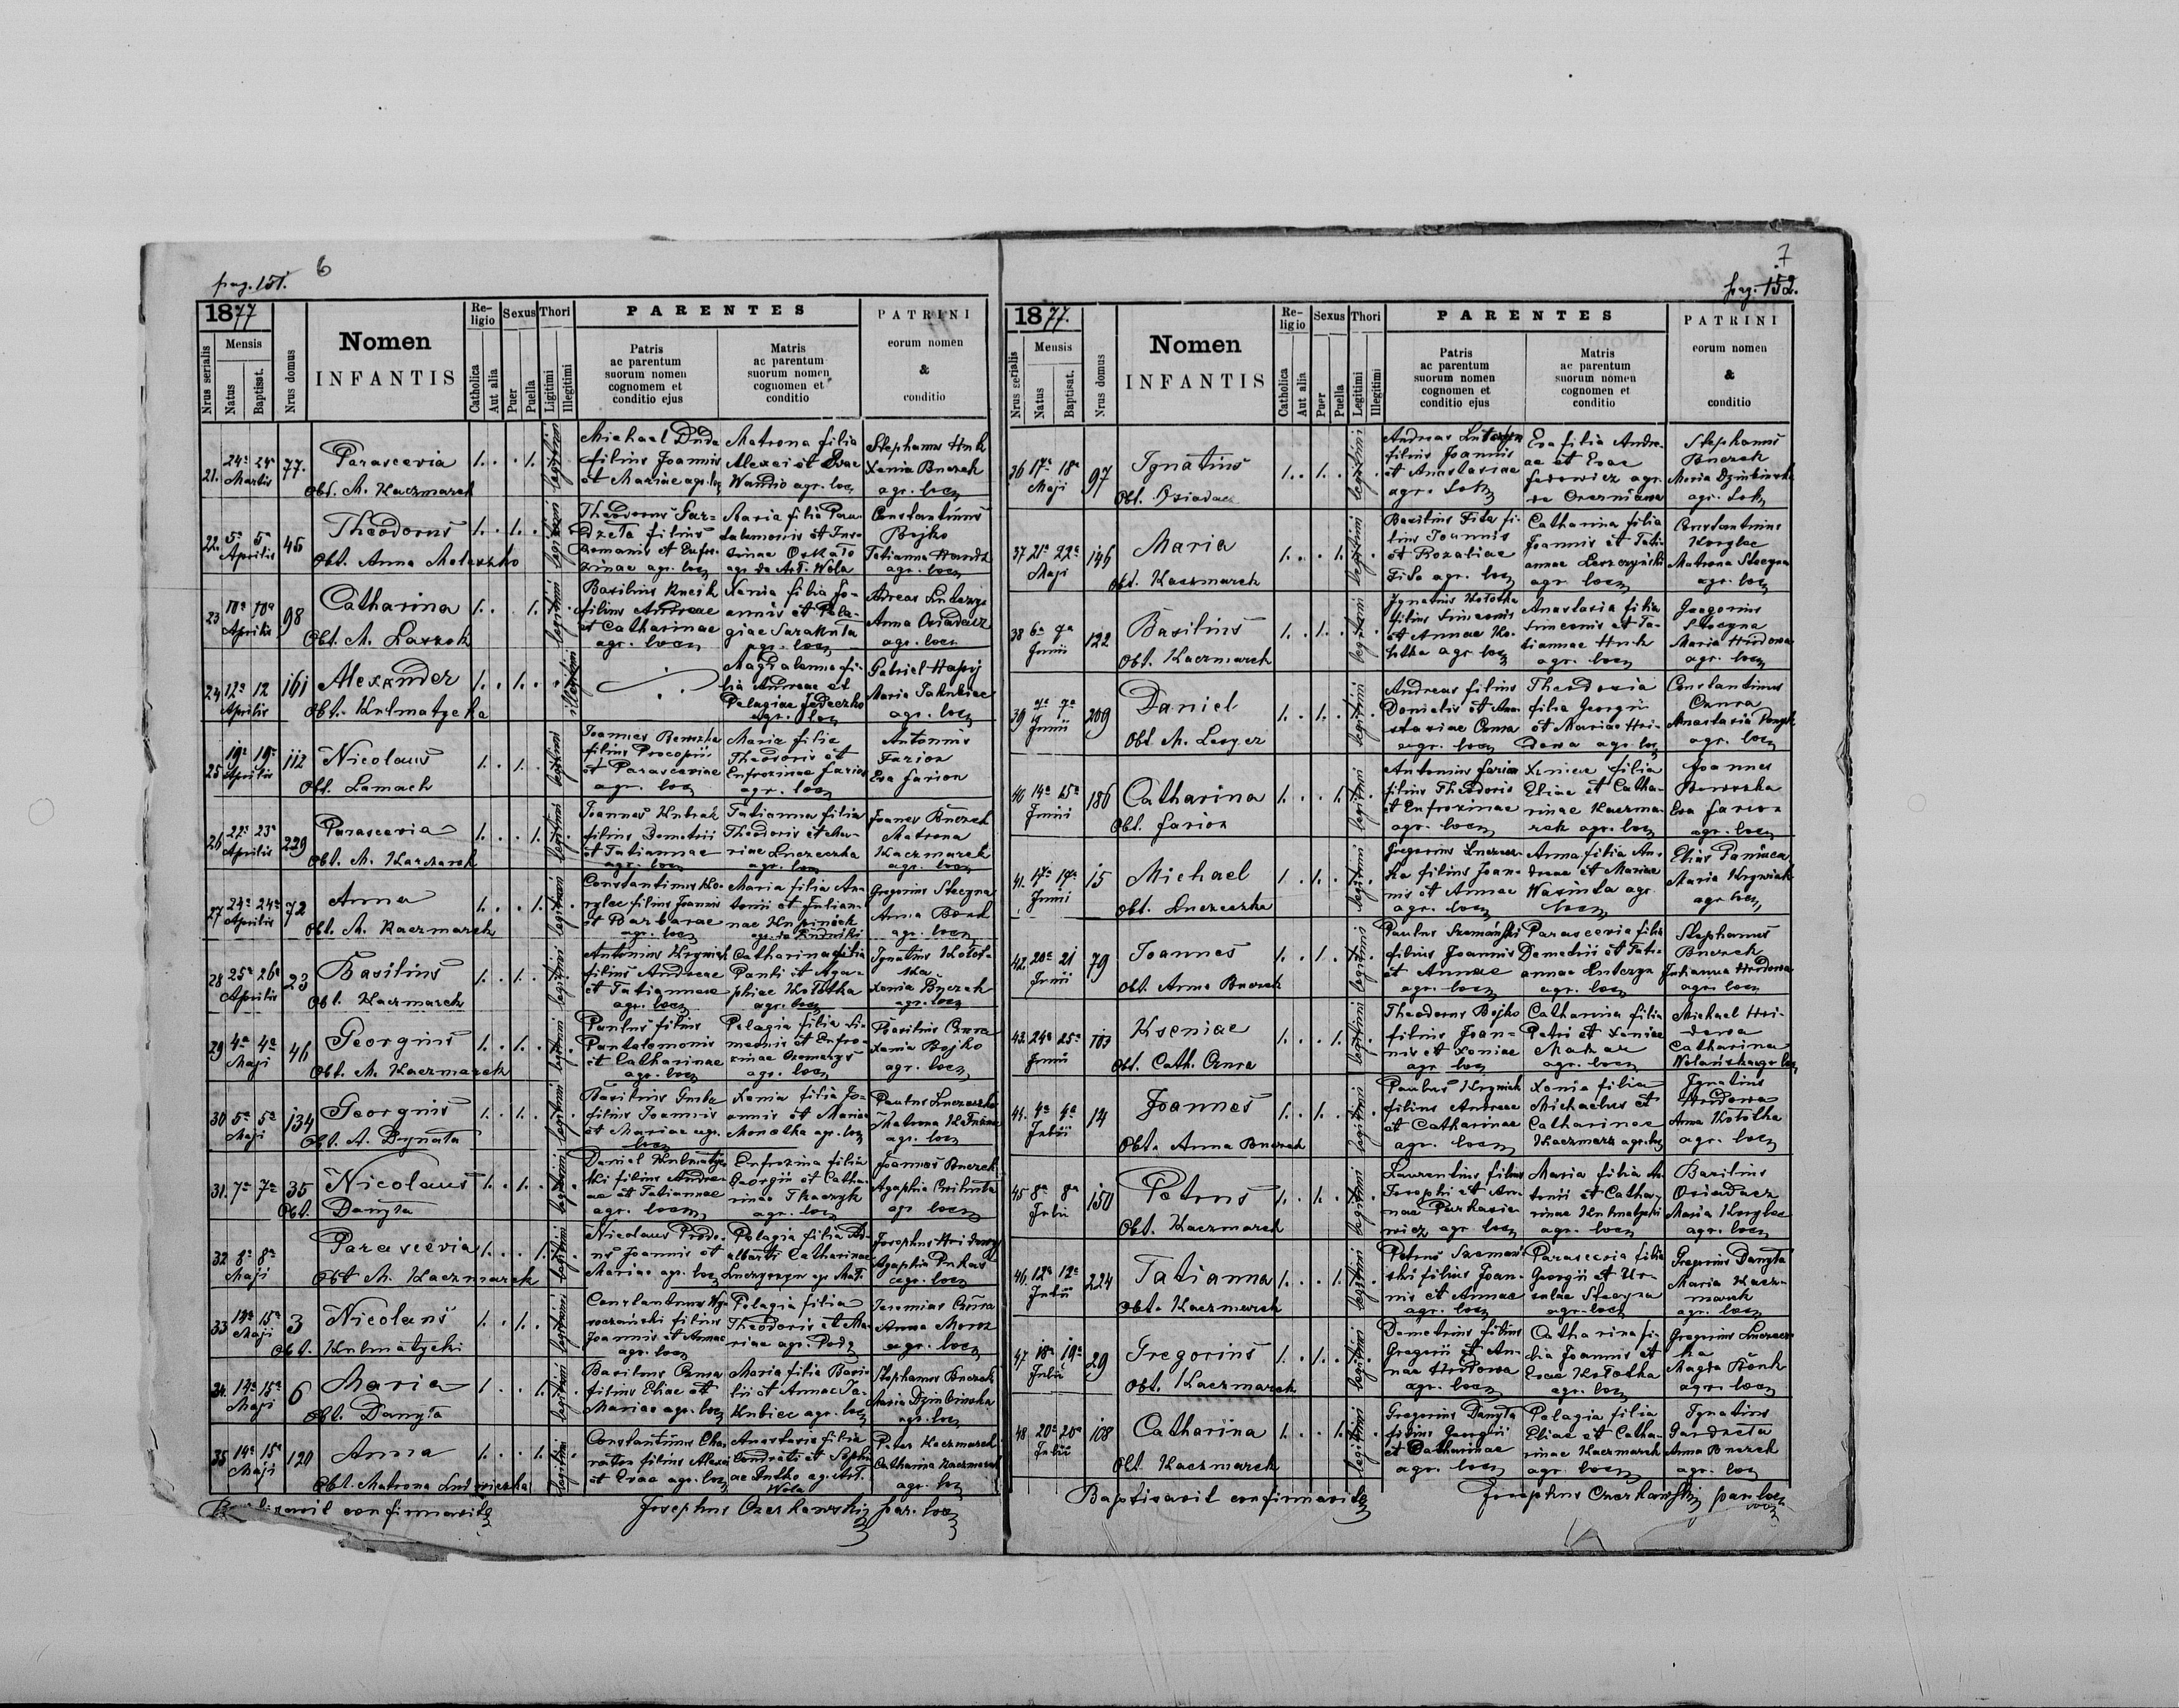 6
pag. 151.
1877
Nrus serialis
Mensis
Natus
Baptisat.
Nrus domus
Nomen
INFANTIS
Re-
ligio
Catholica
Aut alia
Sexus
Puer
Puella
Thori
Ligitimi
Illegitimi
PARENTES
Patris
ac parentum
suorum nomen
cognomem et
conditio ejus
Matris
ac parentum
suorum nomen
cognomen et
conditio
PATRINI
eorum nomen
&
conditio
21.
24a 24a
Martis
77.
Parascevia
Obt. M. Kaczmarek
1. . . 1.
legitimi
Michael Duda
filius Joannis
et Mariae agr. loc
Matrona filia
Alexei et Evae
Wandio agr. loc
Stephanus Huk
Xenia Buczek
agr. loc
22.
5a 5a
Aprilis
46
Theodorus
1. . 1. .
legitimi
Theodorus
filius
Romanis et
agr. loc
Maria filia Pan-
talemonis et
agr. de Art. Wola
Constantinus
Bojko
Tatianna
agr. loc
23
10a 10a
Aprilis
98
Catharina
Obt. M. Laszok
1. . . 1.
legitimi
Basilius
filius Andreae
et Catharinae
agr. loc
Xenia filia Jo-
annis et Pela-
giae
agr. loc
Andreas
Anna Osiadacz
agr. loc
24
12a 12
Aprilis
161
Alexander
Obt. Kulmatycka
1. . 1. .
illegitimi
Magdalenna fi-
lia Andreae et
Pelagiae Fedeczko
agr. loc
Gabriel Hapij
Maria Jakubiec
agr. loc
25
19a 19a
Aprilis
112
Nicolaus
Obt. Lamach
1. . 1. .
legitimi
Joannes
filius Procopii
et Parasceviae
agr. loc
Maria filia
Theodoris et
Eufrozinae Farion
agr. loc
Antonius
Farion
Eva Farion
26
22a 23a
Aprilis
229
Parascevia
Obt. M. Kaczmarek
1. . . 1.
legitimi
Joannes
filius Demetrii
et Tatiannae
agr. loc
Tatianna filia
Theodoris et Ma-
riae Luczeczka
agr. loc
Joannes Buczek
Matrona
Kaczmarek
agr. loc
27
24a 24a
Aprilis
72
Anna
Obt. M. Kaczmarek
1. . . 1.
legitimi
Constantinus Ko-
rylec filius Joannis
et Barbarae
agr. loc
Maria filia An-
tonii et Julian-
nae
agr. de Rudniki
Gregorius Steczna
Anna
agr. loc
28
25a 26a
Aprilis
23
Basilius
Obt. Kaczmarek
1. . 1. .
legitimi
Antonius
filius Andreae
et Tatiannae
agr. loc
Catharina filia
Pauli et Aga-
phiae Kołotka
agr. loc
Ignatius Kołot-
ka
Xenia Buczek
agr. loc
29
4a 4a
Maji
46
Georgius
Obt. M. Kaczmarek
1. . 1. .
legitimi
Paulus filius
Pantalemonis
et Catharinae
agr. loc
Pelagia filia Si-
meonis et Eufro-
zinae
agr. loc
Basilius Czura
Xenia Bojko
agr. loc
30
5a 5a
Maji
134
Georgius
1. . 1. .
legitimi
Basilius
filius Joannis
et Mariae agr.
loc
Xenia filia Jo-
annis et Mariae
agr. loc
Paulus Luczeczka
Matrona
agr. loc
31.
7a 7a
35
Nicolaus
Obt. Danyła
1. . 1. .
legitimi
Daniel Kulmatyc-
ki filius Andre-
ae et Tatiannae
agr. loc
Eufrozina filia
Georgii et Catha-
rinae Tkaczyk
agr. loc
Joannes Buczek
Agaphia
agr. loc
32
8a 8a
Maji
Parascevia
Obt. M. Kaczmarek
1. . . 1.
legitimi
Nicolaus
Joannis et
Mariae agr. loc
Pelagia filia Ad-
alberti Catharinae
Josephus Hridowy
Agaphia
agr. loc
33
14a 15a
Maji
3
Nicolaus
Obt. Kulmatycki
1. . 1. .
legitimi
Constantinus
filius
Joannis et Annae
agr. loc
Pelagia filia
Theodoris et Ma-
riae agr.
Jeremias Czura
Anna
agr. loc
34.
14a 15a
Maji
6
Maria
Obt. Danyła
1. . . 1.
legitimi
Basilius Czura
filius Eliae et
Mariae agr. loc
Maria filia Basi-
lii et Annae Ja-
kubiec agr. loc
Stephanus Buczek
Maria Dziubinska
agr. loc
35
14a 15a
Maji
120
Anna
Obt. Matrona
1. . . 1.
legitimi
Constantinus
filius Alexei
et Evae agr. loc
Anastasia filia
Condrati et Sophi-
ae agr. Art.
Wola
Petrus Kaczmarek
Catharina Kaczmarek
agr. loc
confirmavit
Josephus Czerkawskij par. loc
7
pag. 152.
1877.
Nrus serialis
Mensis
Natus
Baptisat.
Nrus domus
Nomen
INFANTIS
Re-
ligio
Catholica
Aut alia
Sexus
Puer
Puella
Thori
Legitimi
Illegitimi
PARENTES
Patris
ac parentum
suorum nomen
cognomen et
conditio ejus
Matris
ac parentum
suorum nomen
cognomen et
conditio
PATRINI
eorum nomen
&
conditio
36
17a 18a
Maji
97
Ignatius
Obt. Osiadacz
1. . 1. .
legitimi
Andreas
filius Joannis
et Anastasiae
agr. lok
Eva filia Andre-
ae et Evae
Fedorowicz agr.
de
Stephanus
Buczek
Maria Dziubinska
agr. lok
37
21a 22a
Maji
145
Maria
Obt. Kaczmarek
1. . . 1.
legitimi
Basilius Fita fi-
lius Joannis
et Rozaliae
Fita agr. loc
Catharina filia
Joannis et Tati-
annae Leszczyński
agr. loc
Constantinus
Korylec
Matrona Steczna
agr. loc
38
6a 7a
Junii
122
Basilius
Obt. Kaczmarek
1. . 1. .
legitimi
Ignatius Kołotka
filius Simeonis
et Annae Ko-
łotka agr. loc
Anastasia filia
Simeonis et Ta-
tiannae Huk
agr. loc
Gregorius
Steczna
Maria Hridowa
agr. loc
39
7a 7a
Junii
209
Daniel
1. . 1. .
legitimi
Andreas filius
Danielis et Ana-
stasiae Czura
agr. loc
Theodozia
filia Georgii
et Mariae Hri-
dowa agr. loc
Constantinus
Czura
Anastasia
agr. loc
40
14a 15a
Junii
186
Catharina
Obt. Farion
1. . . 1.
legitimi
Antonius Farion
filius Theodoris
et Eufrozinae
agr. loc
Xenia filia
Eliae et Catha-
rinae Kaczma-
rek agr. loc
Joannes
Eva Farion
agr. loc
41.
17a 17a
Junii
15
Michael
Obt. Luczeczka
1. . 1. .
legitimi
Gregorius Luczecz-
ka filius Joan-
nis et Annae
agr. loc
Anna filia An-
dreae et Mariae
agr.
loc
Elias
Maria
agr. loc
42.
20a 21
Junii
79
Joannes
Obt. Anna Buczek
1. . 1. .
legitimi
Paulus Szemański
filius Joannis
et Annae
agr. loc
Parascevia filia
Demetrii et Tati-
annae
agr. loc
Stephanus
Buczek
Julianna Hridowa
agr. loc
43.
24a 25a
Junii
103
Kseniae
Obt. Cath. Czura
1. . . 1.
legitimi
Theodorus Bojko
filius Joan-
nis et Xeniae
agr. loc
Catharina filia
Petri et Xeniae
agr. loc
Michael Hri-
dowa
Catharina
Wolańska agr. loc
44.
4a 4a
Julii
14
Joannes
Obt. Anna Buczek
1. . 1. .
legitimi
Paulus
filius Andreae
et Catharinae
agr. loc
Xenia filia
Michaelis et
Catharinae
Kaczmarz agr. loc
Ignatius
Hridowa
Anna Kołotka
agr. loc
45
8a 8a
Julii
150
Petrus
Obt. Kaczmarek
1. . 1. .
legitimi
Laurentius filius
Josephi et An-
nae
agr. loc
Maria filia An-
tonii et Catha-
rinae Kulmatycki
agr. loc
Basilius
Osiadacz
Maria Korylec
agr. loc
46.
12a 12a
Julii
224
Tatianna
Obt. Kaczmarek
1. . . 1.
legitimi
Petrus Szemań-
ski filius Joan-
nis et Annae
agr. loc
Parascevia filia
Georgii et Ur-
sulae Steczna
agr. loc
Gregorius Danyła
Maria Kacz-
marek
agr. loc
47
18a 19a
Julii
29
Gregorius
Obt. Kaczmarek
1. . 1. .
legitimi
Demetrius filius
Gregorii et An-
nae Hridowa
agr. loc
Catharina fi-
lia Joannis et
Evae Kołotka
agr. loc
Gregorius Luczecz-
ka
Magda
agr. loc
48
20a 20a
Julii
108
Catharina
Obt. Kaczmarek
1. . . 1.
legitimi
Gregorius Danyła
filius Georgii
et Catharinae
agr. loc
Pelagia filia
Eliae et Catha-
rinae Kaczmarek
agr. loc
Ignatius
Anna Buczek
agr. loc
Baptisavit confirmavit
Josephus Czerkawskij par. loc